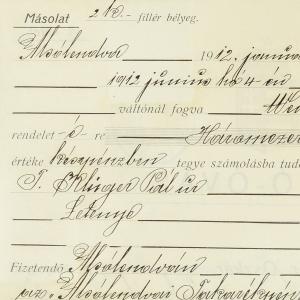 Másolat 210.- fillér bélyeg.
Alsólendva 1912. január
1912 junius hó 4-én
váltónál fogva
rendelet -é- re Háromezer
értéke készpénzben tegye számolásba tud
T. Klinger Pál úr
Letenye
Fizetendő Alsólendván
az "Alsólendvai Takarékpén